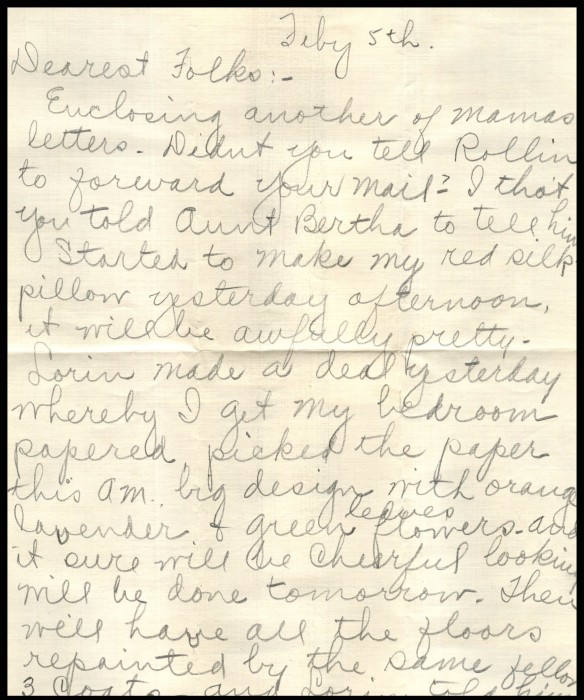 Feby 5th.
Dearest Folks:-
Enclosing another of mamas
letters. Didnt you tell Rollin
to forward your mail? I thot
you told Aunt Bertha to tell him
Started to make my red silk
pillow yesterday afternoon,
it will be awfully pretty.
Lorin made a deal yesterday
whereby I get my bedroom
papered, picked the paper
this am. big design with orange
leaves
lavender & green flowers - and
it sure will be cheerful looking
will be done tomorrow. Then
will have all the floors
repainted by the same fellow
3 coats - and Lorin